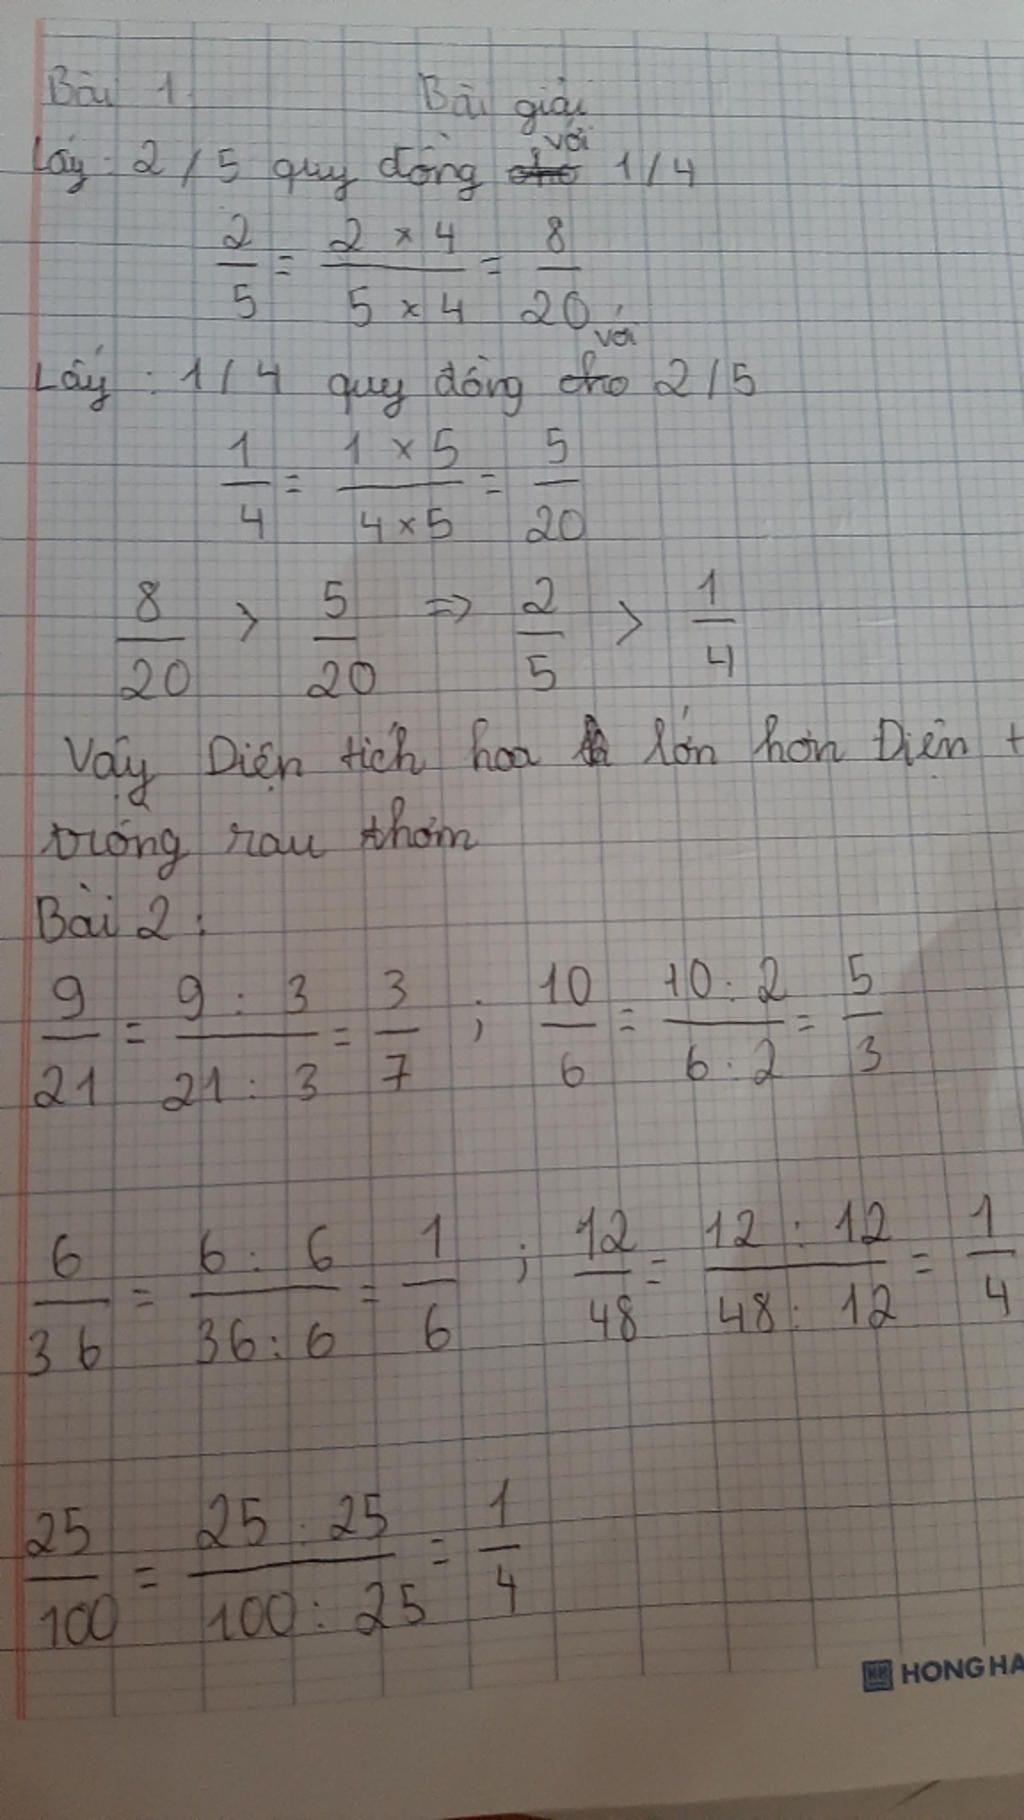 Bài 1 Bài giải
Lấy : 2/5 quy đồng với 1/4
2/5 = 2 × 4 / 5 × 4 = 8/20
Lấy : 1/4 quy đồng cho với 2/5
1/4 = 1 × 5 / 4 × 5 = 5/20
8/20 > 5/20 => 2/5 > 1/4
Vậy Diện tích hoa lớn hơn Diện t
trồng rau thơm
Bài 2 :
9/21 = 9 : 3 / 21 : 3 = 3/7 ; 10/6 = 10 : 2 / 6 : 2 = 5/3
6/36 = 6 : 6 / 36 : 6 = 1/6 ; 12/48 = 12 : 12 / 48 : 12 = 1/4
25/100 = 25 : 25 / 100 : 25 = 1/4
HONG HA